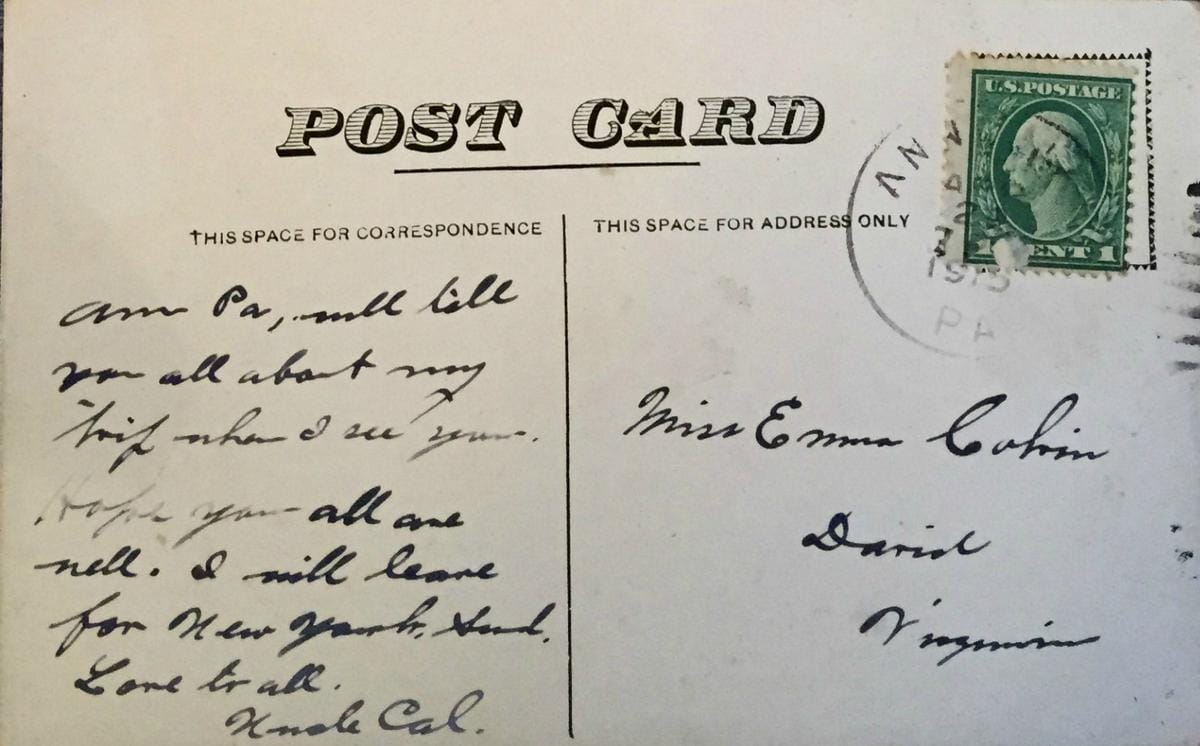 POST CARD
THIS SPACE FOR CORRESPONDENCE
THIS SPACE FOR ADDRESS ONLY
U.S.POSTAGE
1 CENT 1
1915
PA
Pa, will tell
you all about my
trip when I see you.
Hope you all are
well. I will leave
for New York, Sund.
Love to all.
Uncle Cal.
Miss Emma Colvin
David
Virginia